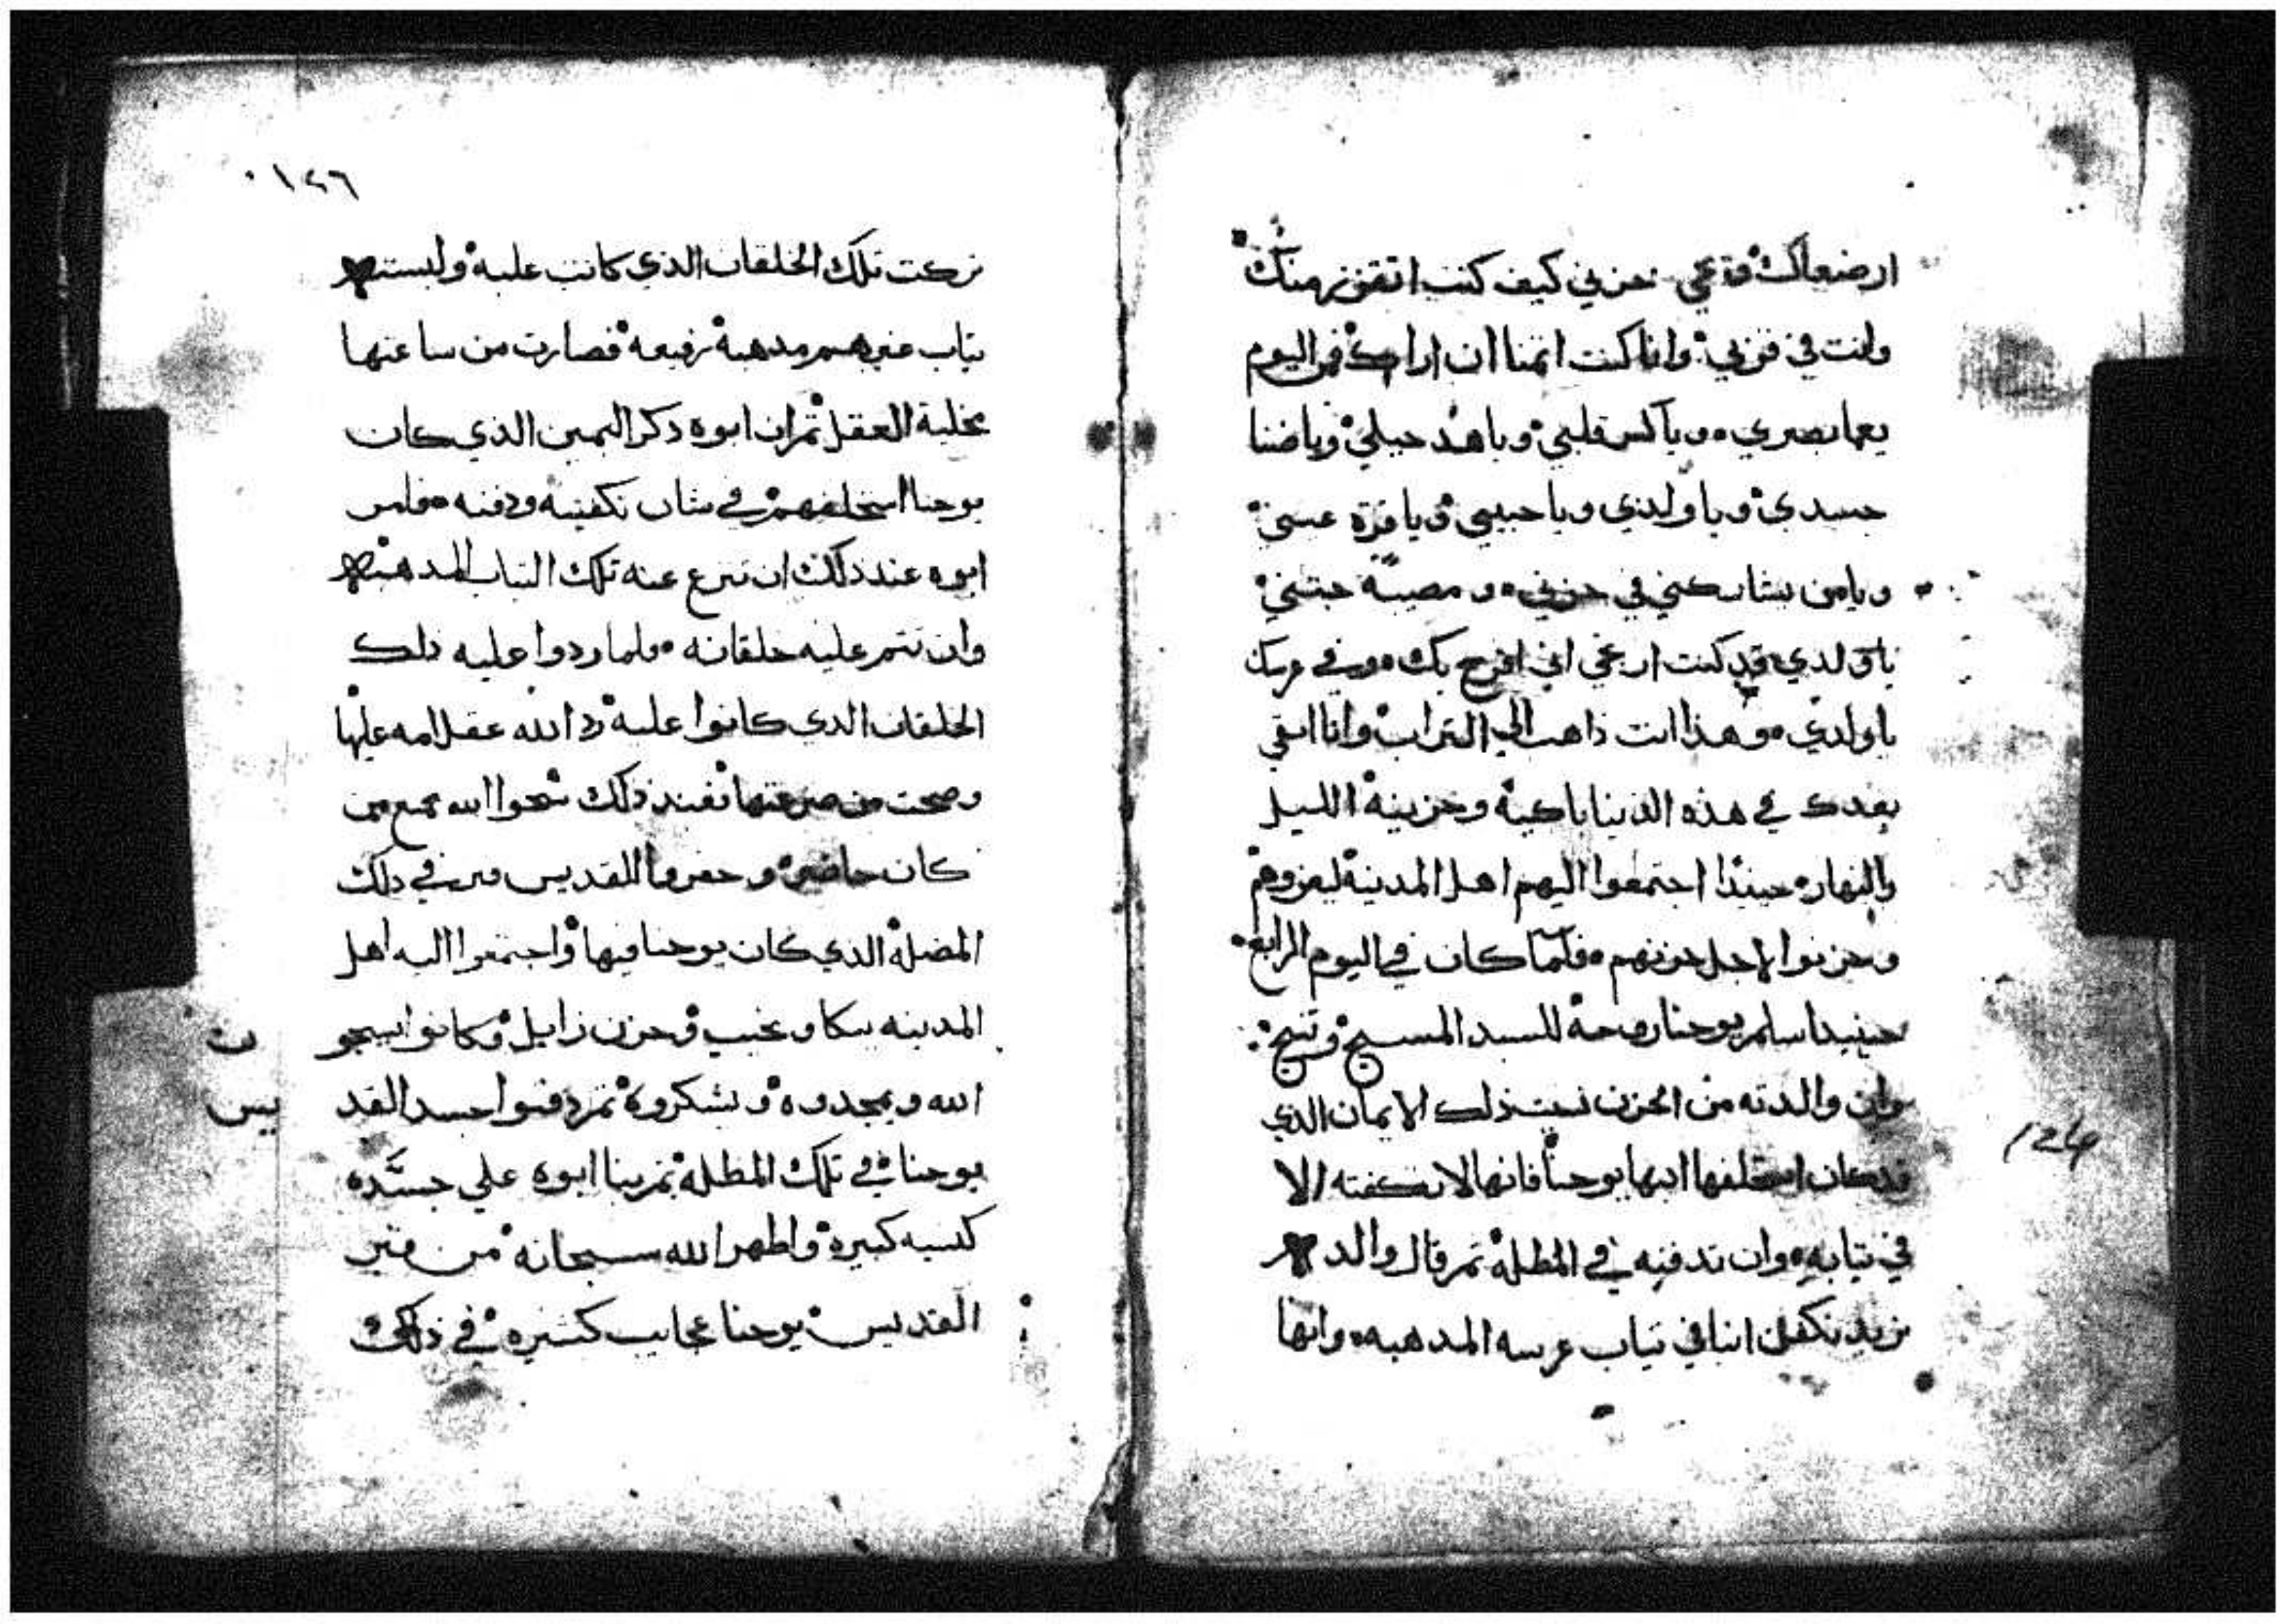 ارضعاك وقعي حزني كيف كنت اتقزز منك
وانت في قربي وانا كنت اتمنا ان اراك فمن اليوم
يعما بصري ويا كسر قلبي ويا هد حيلي ويا ضنا
جسدي ويا ولدي ويا حبيبي ويا قرة عيني
ويا من يشاركني في حزني و مصيبة
يا ولدي قد كنت ارتجي اني افرح بك وفي عرسك
يا ولدي وهذا انت ذاهب الي التراب وانا ابقي
بعدك في هذه الدنيا باكية وحزينة الليل
والنهار حينيذا اجتمعوا اليهم اهل المدينة ليعزوهم
وحزنوا لاجل حزنهم فلما كان في اليوم الرابع
حينيدا سلم يوحنا روحة للسيد المسيح وتنيح
وان والدته من الحزن نسيت ذلك الايمان الذي
قد كان استحلفها ابنها يوحنا فانها لا تكفنه الا
في تيابه وان تدفنه في المظلة تم قال والدهم
نريد نكفن ابنا في تياب عرسه المدهبه وانها
١٢٦
نزعت تلك الخلقان الذي كانت عليه ولبستهم
تياب غيرهم مدهبة رفيعه فصارت من ساعتها
مخلية العقل تم ان ابوه دكر اليمين الذي كان
يوحنا استحلفهم في شان تكفينه ودفنه فامر
ابوه عند ذلك ان تنزع عنه تلك التياب المدهبه
وان تتم عليه خلقانه فلما ردوا عليه ذلك
الخلقان الدي كانوا عليه رد الله عقل امه عليها
وصحت من صرعتها فعند ذلك سبحوا الله جميع من
كان حاضر وحفروا للقديس قبر في ذلك
المضلة الدي كان يوحنا فيها واجتمعوا اليه اهل
المدينه ببكا و نحيب وحزن زايل وكانوا يسبحو ن
الله ويمجدوه ويشكروه تم دفنوا جسد القد يس
يوحنا في تلك المظلة تم بنا ابوه علي جسده
كنيسه كبيرة واظهر الله سبحانه من قبر
القديس يوحنا عجايب كتيره في ذلك
124